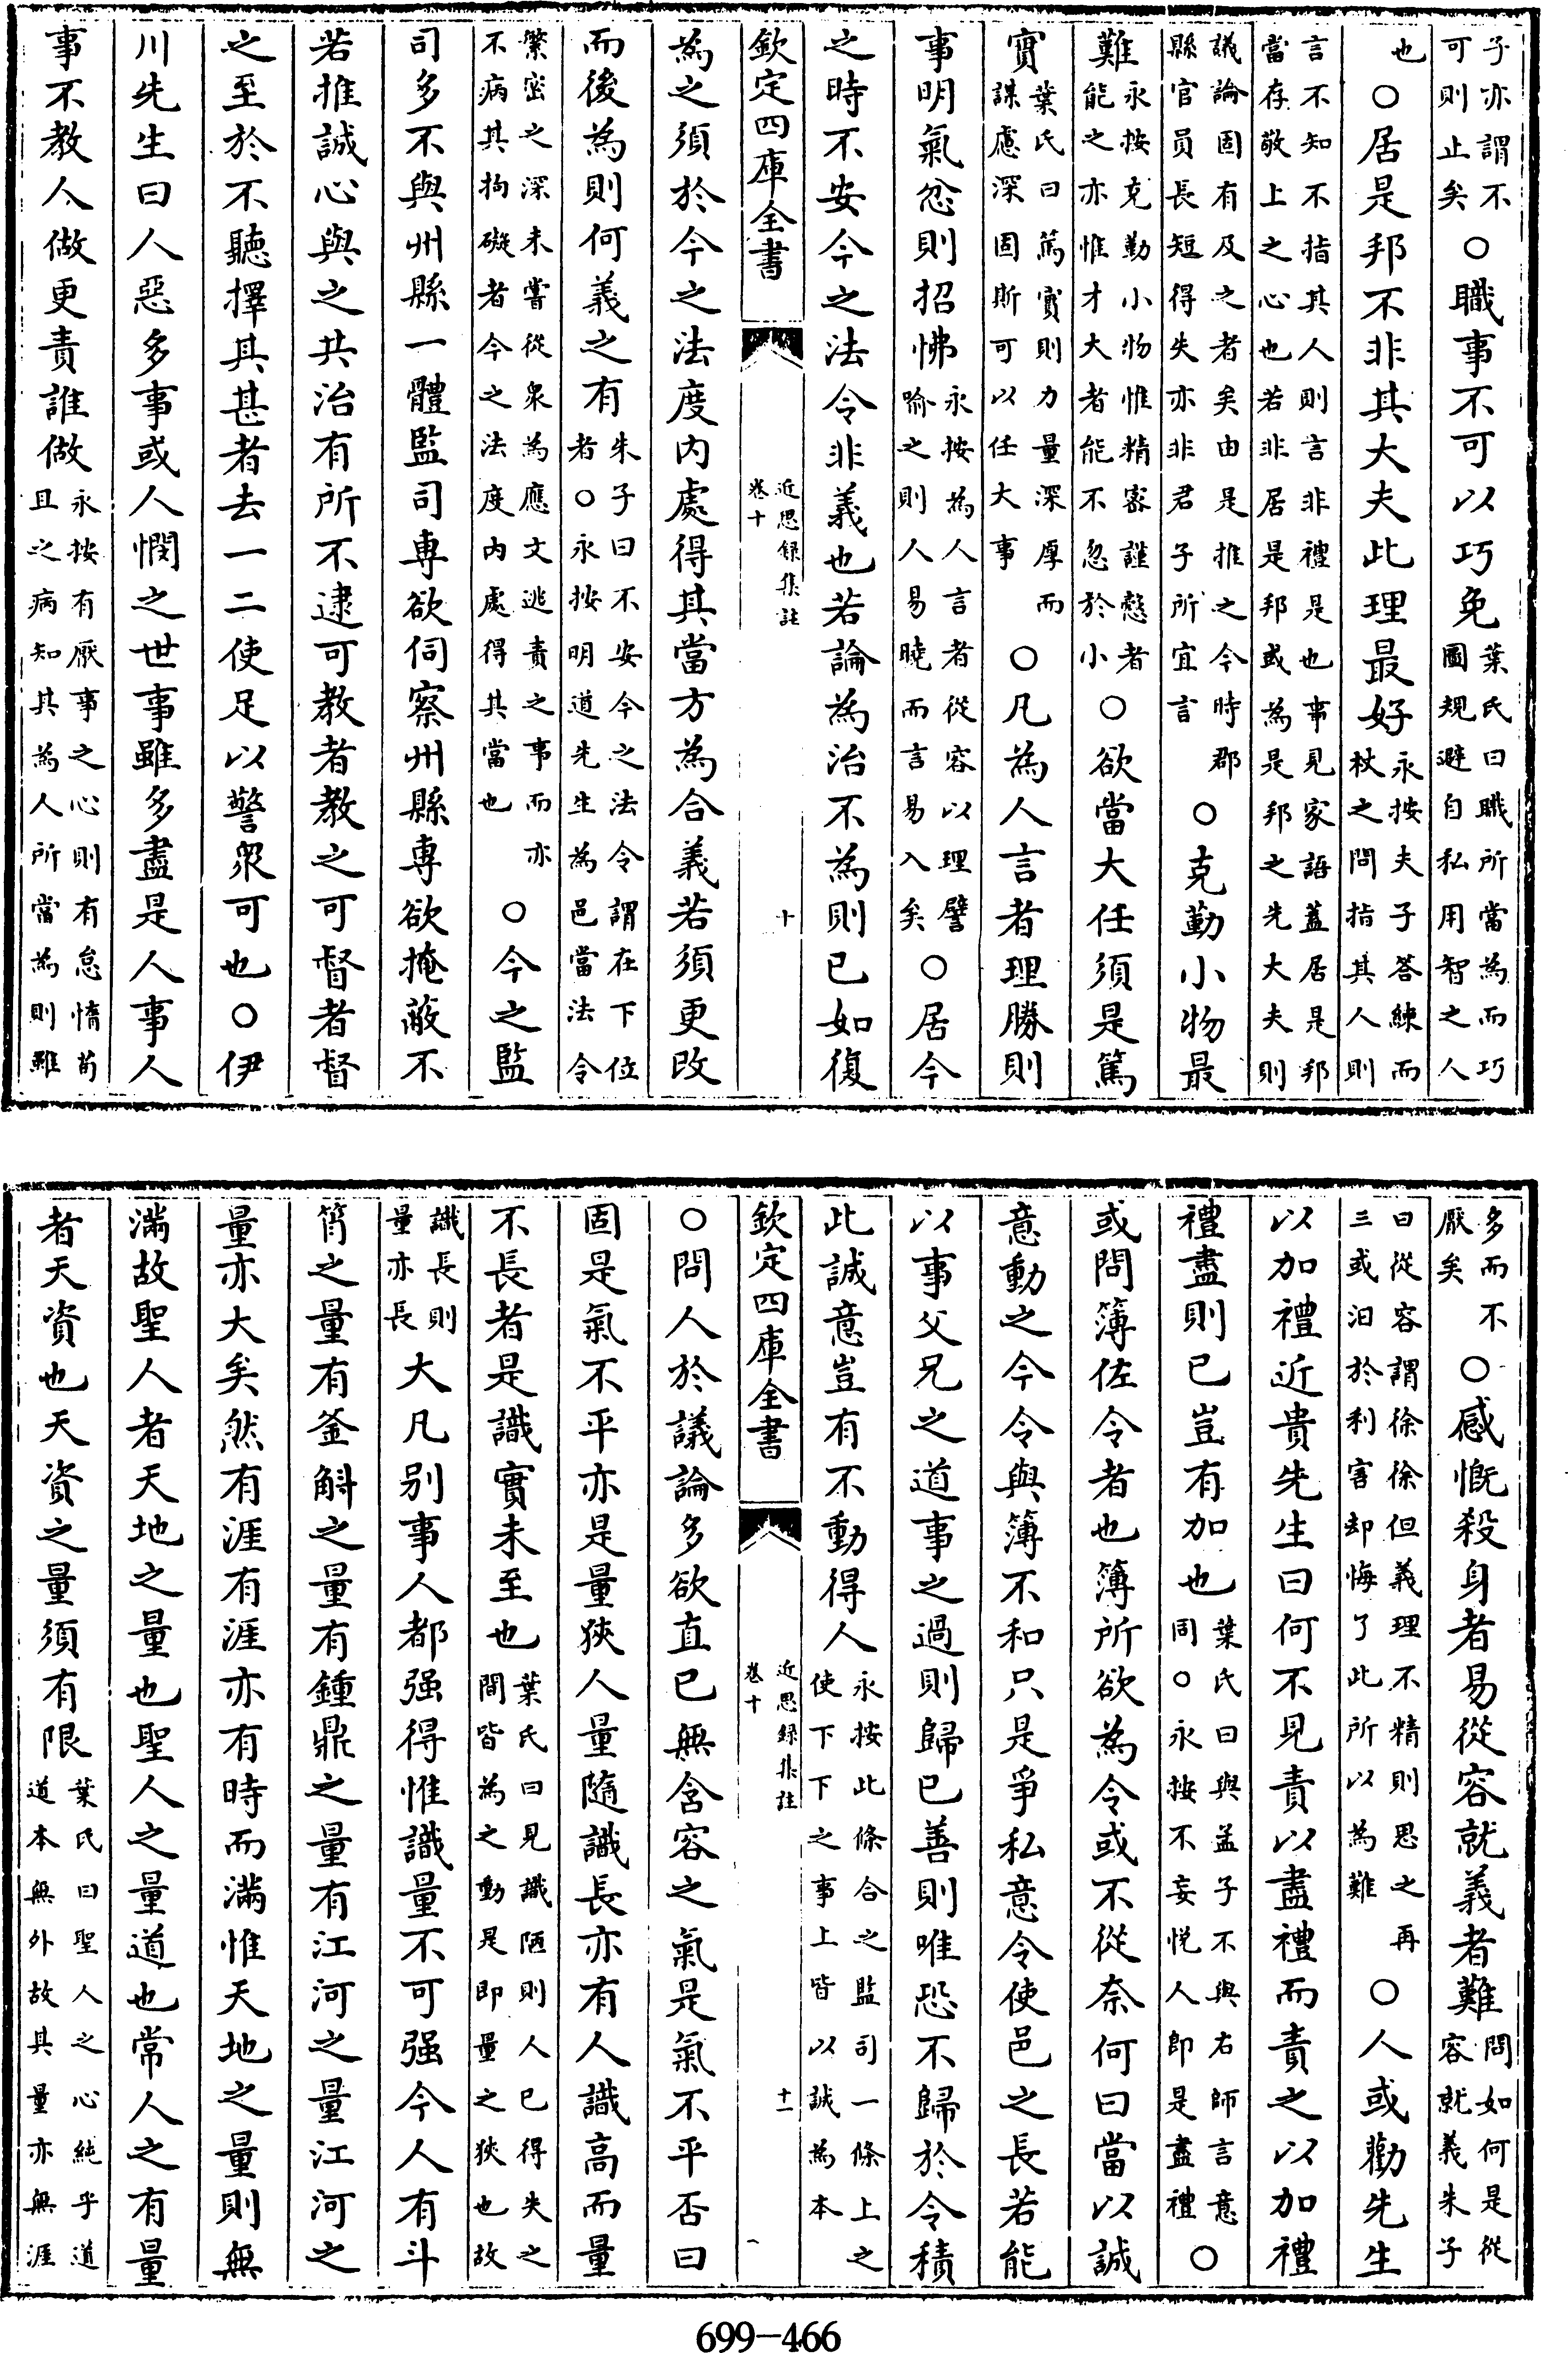 子亦謂不可則止矣○職事不可以巧免葉氏曰職所當為而巧圖規避自私用智之人
也○居是邦不非其大夫此理最好永按夫子答練而杖之問指其人則
言不知不指其人則言非禮是也事見家語蓋居是邦當存敬上之心也若非居是邦或為是邦之先大夫則
議論固有及之者矣由是推之今時郡縣官員長短得失亦非君子所宜言○克勤小物最
難永按克勤小物惟精密謹慤者能之亦惟才大者能不忽於小○欲當大任須是篤
實葉氏曰篤實則力量深厚而謀慮深固斯可以任大事○凡為人言者理勝則
事明氣忿則招怫永按為人言者從容以理譬喻之則人易曉而言易入矣○居今
之時不安今之法令非義也若論為治不為則已如復
欽定四庫全書 近思録集註 卷十 十
為之須於今之法度内處得其當方為合義若須更改
而後為則何義之有朱子曰不安今之法令謂在下位者○永按明道先生為邑當法令
繁密之深未嘗從衆為應文逃責之事而亦不病其拘礙者今之法度内處得其當也○今之監
司多不與州縣一體監司専欲伺察州縣専欲掩蔽不
若推誠心與之共治有所不逮可教者教之可督者督
之至於不聽擇其甚者去一二使足以警衆可也○伊
川先生曰人惡多事或人憫之世事雖多盡是人事人
事不教人做更責誰做永按有厭事之心則有怠惰苟且之病知其為人所當為則雖
多而不厭矣○感慨殺身者易從容就義者難問如何是從容就義朱子
曰從容謂徐徐但義理不精則思之再三或汩於利害却悔了此所以為難○人或勸先生
以加禮近貴先生曰何不見責以盡禮而責之以加禮
禮盡則已豈有加也葉氏曰與孟子不與右師言意同○永按不妄悦人即是盡禮○
或問簿佐令者也簿所欲為令或不從奈何曰當以誠
意動之今令與簿不和只是爭私意令使邑之長若能
以事父兄之道事之過則歸己善則唯恐不歸於令積
此誠意豈有不動得人永按此條合之監司一條上之使下下之事上皆以誠為本
欽定四庫全書 近思録集註 卷十 十一
○問人於議論多欲直己無含容之氣是氣不平否曰
固是氣不平亦是量狹人量隨識長亦有人識高而量
不長者是識實未至也葉氏曰見識陋則人已得失之間皆為之動是即量之狹也故
識長則量亦長大凡别事人都强得惟識量不可强今人有斗
筲之量有釜斛之量有鍾鼎之量有江河之量江河之
量亦大矣然有涯有涯亦有時而滿惟天地之量則無
滿故聖人者天地之量也聖人之量道也常人之有量
者天資也天資之量須有限葉氏曰聖人之心純乎道道本無外故其量亦無涯
699-466